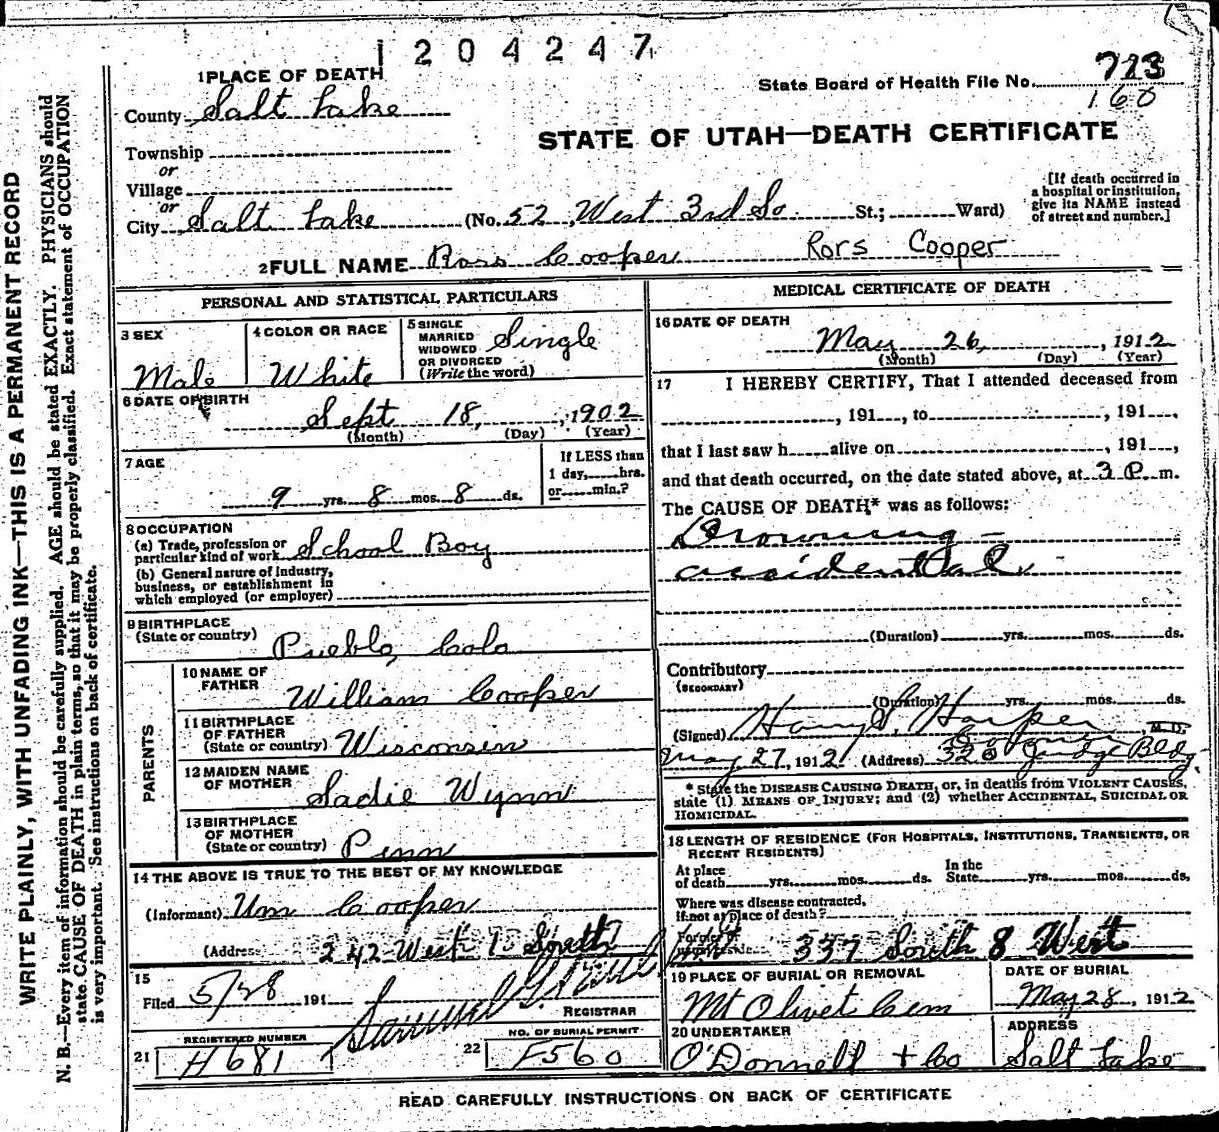 1204247
State Board of Health File No. 773
160
STATE OF UTAH—DEATH CERTIFICATE
1 PLACE OF DEATH
County Salt Lake
Township
or
Village
or
City Salt Lake (No. 52 West 3rd So. St.; Ward)
[If death occurred in
a hospital or institution,
give its NAME instead
of street and number.]
2 FULL NAME Ross Cooper Rors Cooper
WRITE PLAINLY, WITH UNFADING INK—THIS IS A PERMANENT RECORD
N. B.—Every item of information should be carefully supplied. AGE should be stated EXACTLY. PHYSICIANS should
state CAUSE OF DEATH in plain terms, so that it may be properly classified. Exact statement of OCCUPATION
is very important. See instructions on back of certificate.
PERSONAL AND STATISTICAL PARTICULARS
3 SEX
Male
4 COLOR OR RACE
White
5 SINGLE
MARRIED
WIDOWED
OR DIVORCED
(Write the word)
Single
6 DATE OF BIRTH
Sept 18, 1902
(Month) (Day) (Year)
7 AGE
9 yrs. 8 mos. 8 ds.
If LESS than
1 day, hrs.
or min.?
8 OCCUPATION
(a) Trade, profession or
particular kind of work School Boy
(b) General nature of industry,
business, or establishment in
which employed (or employer)
9 BIRTHPLACE
(State or country) Pueblo, Colo
PARENTS
10 NAME OF
FATHER
William Cooper
11 BIRTHPLACE
OF FATHER
(State or country) Wisconsin
12 MAIDEN NAME
OF MOTHER
Sadie Wynn
13 BIRTHPLACE
OF MOTHER
(State or country) Penn
14 THE ABOVE IS TRUE TO THE BEST OF MY KNOWLEDGE
(Informant) Wm Cooper
(Address 242 West 1 South
15
Filed 5/28 191
Samuel G.
REGISTRAR
REGISTERED NUMBER
21 H681
NO. OF BURIAL PERMIT
22 F560
MEDICAL CERTIFICATE OF DEATH
16 DATE OF DEATH
May 26, 1912
(Month) (Day) (Year)
17 I HEREBY CERTIFY, That I attended deceased from
, 191 , to , 191 ,
that I last saw h alive on , 191 ,
and that death occurred, on the date stated above, at 3 P. m.
The CAUSE OF DEATH* was as follows:
Drowning –
accidental
(Duration) yrs. mos. ds.
Contributory
(SECONDARY)
(Duration) yrs. mos. ds.
(Signed) Harry S. Harper M.D.
Coroner
May 27, 1912 (Address) 320 Judge Bldg.
* State the DISEASE CAUSING DEATH, or, in deaths from VIOLENT CAUSES,
state (1) MEANS OF INJURY; and (2) whether ACCIDENTAL, SUICIDAL OR
HOMICIDAL.
18 LENGTH OF RESIDENCE (FOR HOSPITALS, INSTITUTIONS, TRANSIENTS, OR
RECENT RESIDENTS)
At place
of death yrs. mos. ds.
In the
State yrs. mos. ds.
Where was disease contracted,
if not at place of death?
Former or
337 South 8 West
19 PLACE OF BURIAL OR REMOVAL
Mt Olivet Cem
DATE OF BURIAL
May 28, 1912
20 UNDERTAKER
O'Donnell + Co
ADDRESS
Salt Lake
READ CAREFULLY INSTRUCTIONS ON BACK OF CERTIFICATE